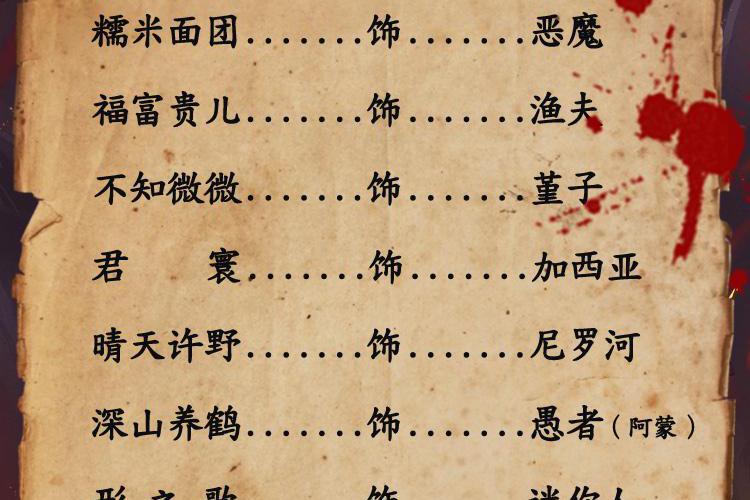 糯米面团.......饰.......恶魔
福富贵儿.......饰.......渔夫
不知微微.......饰.......堇子
君　　寰.......饰.......加西亚
晴天许野.......饰.......尼罗河
深山养鹤.......饰.......愚者（阿蒙）